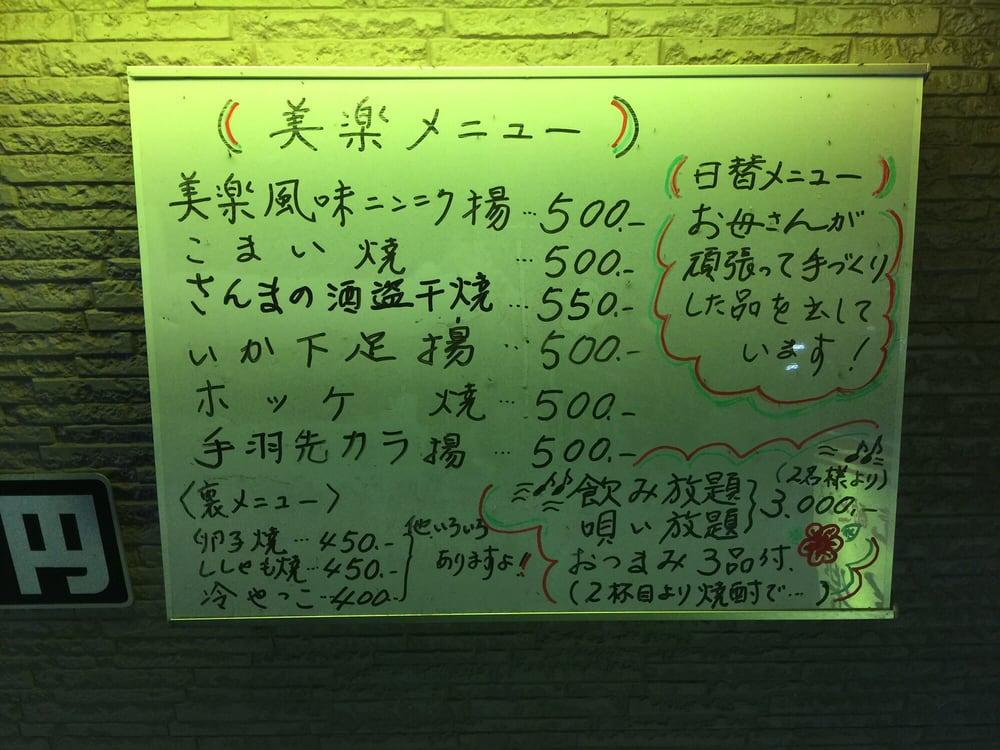 美楽メニュー
美楽風味ニンニク揚…500.-
こまい焼…500.-
さんまの酒盗干焼…550.-
いか下足揚…500.-
ホッケ焼…500.-
手羽先カラ揚…500.-
〈裏メニュー〉
卵子焼…450.-
ししゃも焼…450.-
冷やっこ…400.-
他いろいろ
ありますよ!!
(日替メニュー)
お母さんが
頑張って手づくり
した品を出して
います!
飲み放題
唄い放題
(2名様より)
3.000.-
おつまみ3品付.
(2杯目より焼酎で…)
円